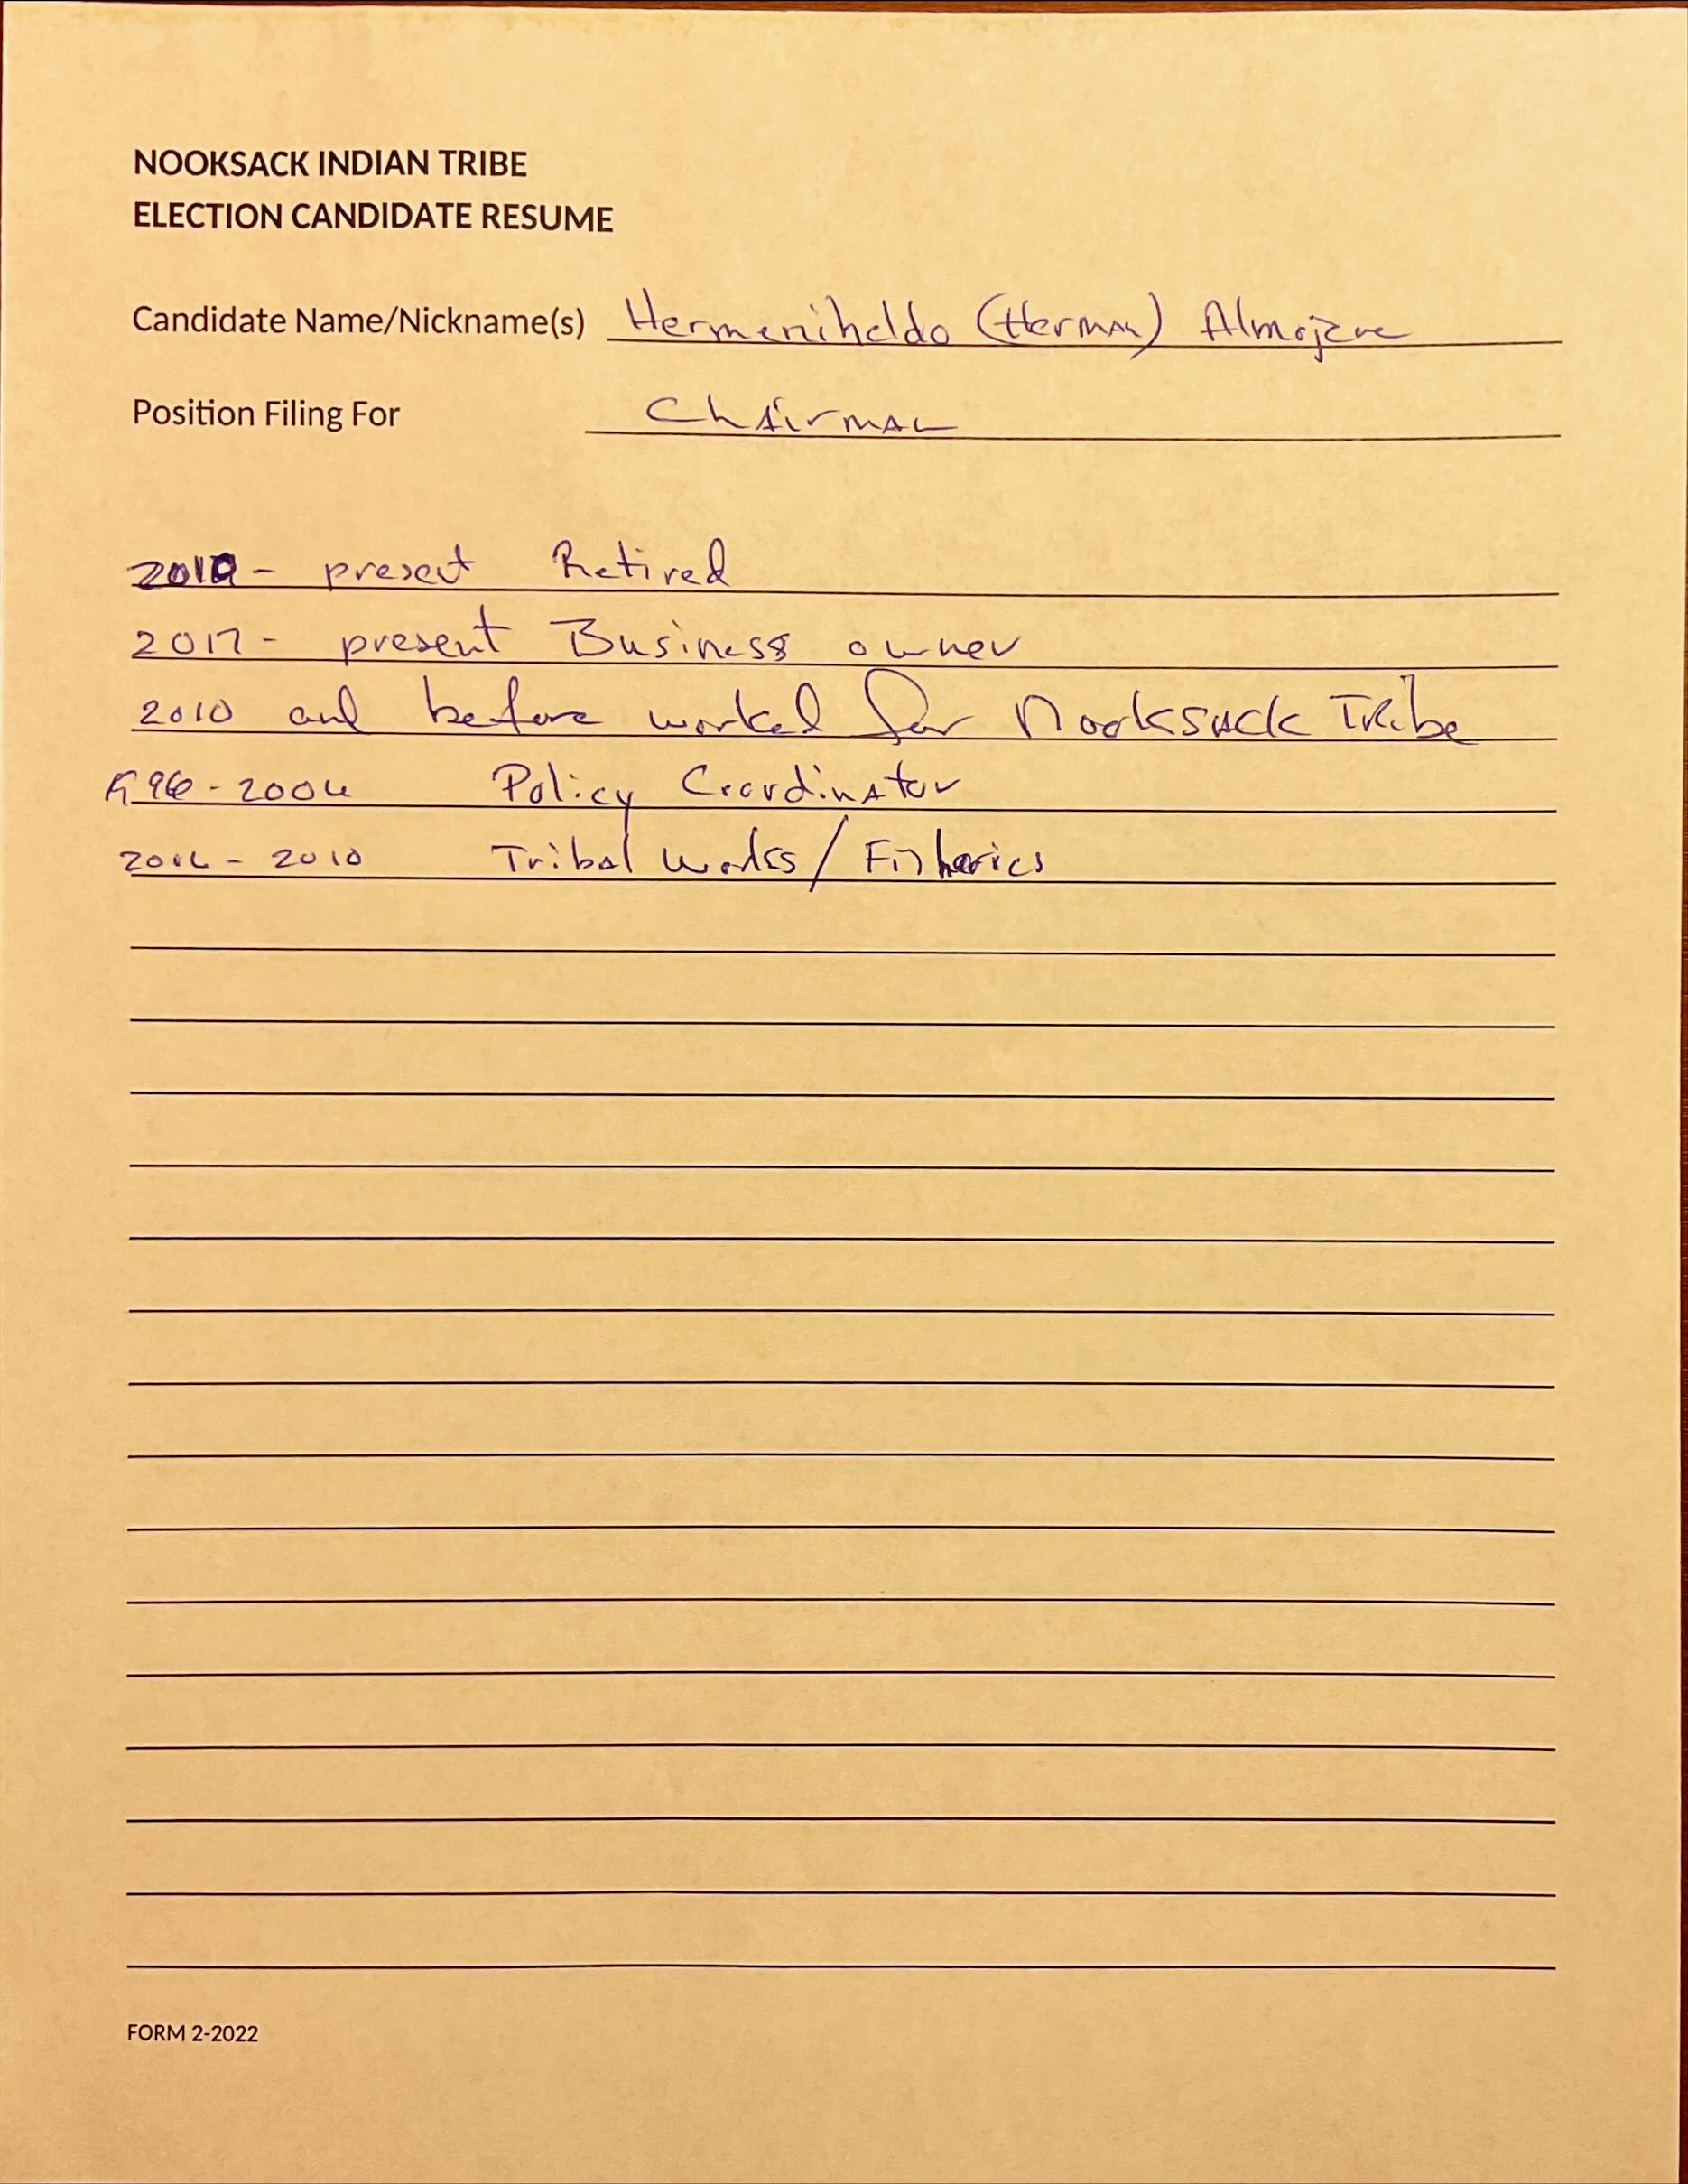 NOOKSACK INDIAN TRIBE
ELECTION CANDIDATE RESUME
Candidate Name/Nickname(s) Hermeniheldo (Herman) Almojera
Position Filing For Chairman
2010 - present Retired
2017 - present Business owner
2010 and before worked for Nooksack Tribe
1996 - 2004 Policy Coordinator
2004 - 2010 Tribal Works / Fisheries
FORM 2-2022